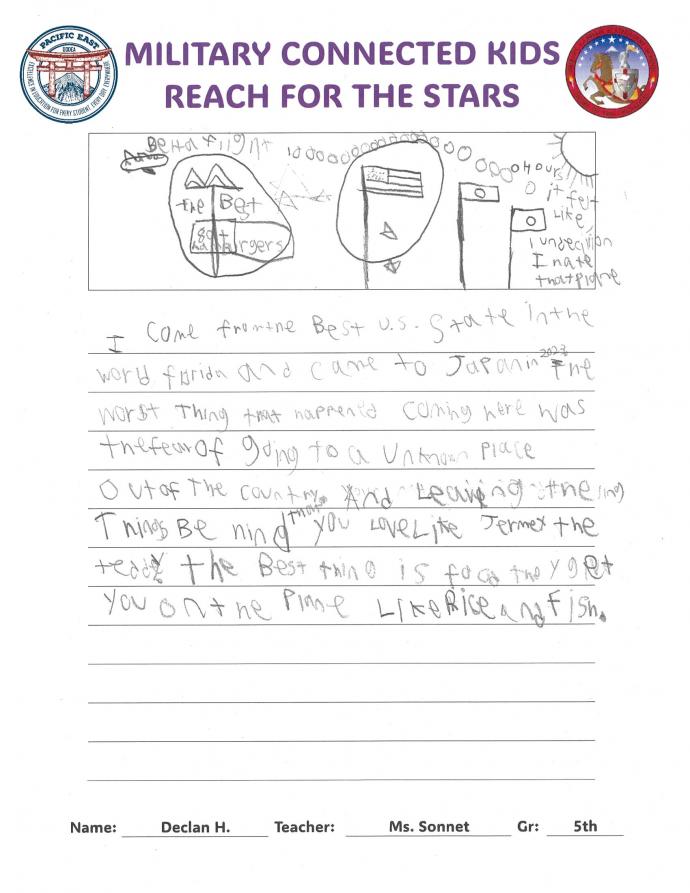 PACIFIC EAST
DODEA
EXCELLENCE IN EDUCATION FOR EVERY STUDENT, EVERY DAY, EVERYWHERE
MILITARY CONNECTED KIDS
REACH FOR THE STARS
flight 10000000000000000 Hours
it felt
Like
the Best
I hate
that plane
I Come from the Best U.S. State in the
world florida and came to Japan in 2023 The
worst Thing that happened coming here was
the fear of going to a unknown place
Out of the country. And Leaving the
Things Be hind that you Love Like Jermex the
teddy the Best thing is food they get
you on the Plane Like Rice and Fish.
Name: Declan H. Teacher: Ms. Sonnet Gr: 5th